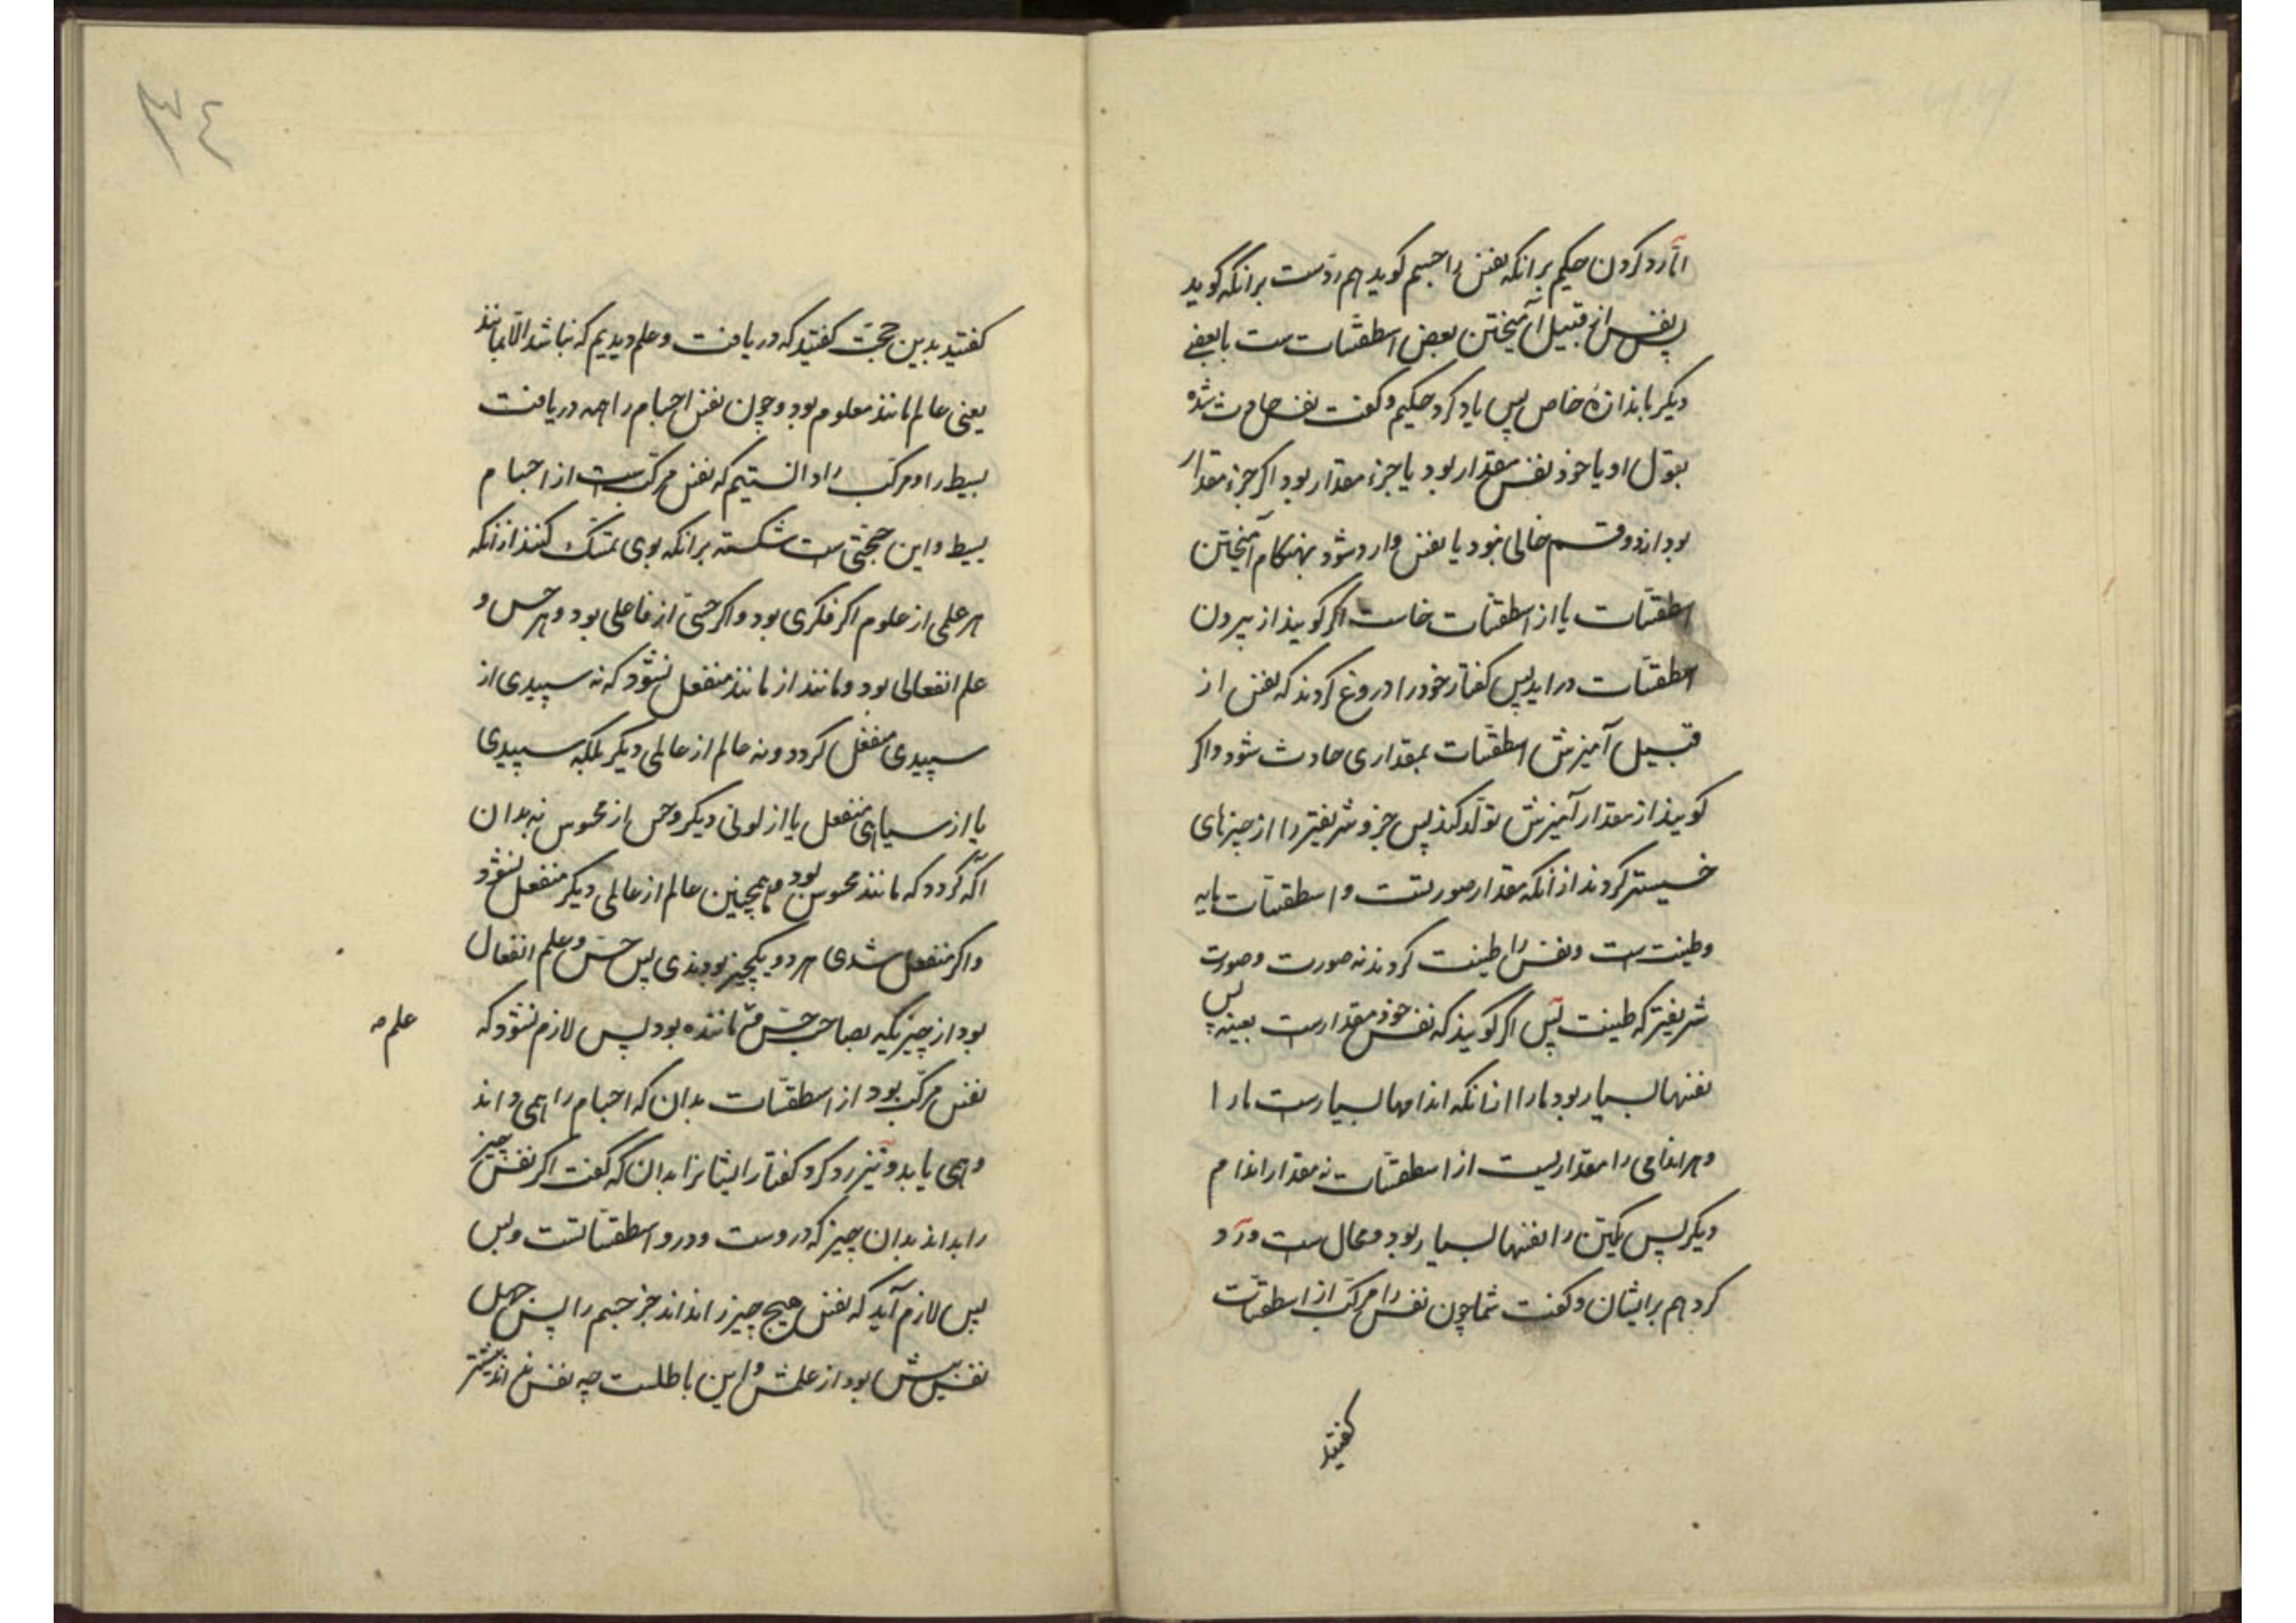 اما رد کردن حکیم برانکه نفس را جسم کوید هم ردّست برانکه کوید
نفس از قبیل آمیختن بعض اسطقسّات ست با بعضی
دیکر باندازهٔ خاص پس یاد کرد حکیم و کفت نفس حادث شده
بقول او یا خود نفس مقدار بود یا جزء مقدار بود اکر جزء مقدار
بود از دو قسم خالی نبود یا نفس وارد شود بهنکام آمیختن
اسطقسّات یا از اسطقسّات خاست اکر کویند از بیرون
اسطقسّات دراید پس کفتار خود را دروغ کردند که نفس از
قبیل آمیزش اسطقسّات بمقداری حادث شود واکر
کویند از مقدار آمیزش تولّد کند پس جزو شریفتر را از چیزهای
خسیستر کردند ازانکه مقدار صورتست و اسطقسّات مایه
و طینت ست و نفس را طینت کردند نه صورت و صورت
شریفتر که طینت پس اکر کویند که نفس خود مقدارست بعینه پس
نفسها بسیار بود ما را ازانکه اندامها بسیارست ما را
و هر اندامی را مقداریست از اسطقسّات نه مقدار اندام
دیکر پس یکتن را نفسها بسیار بود و محال ست و رد
کرد هم برایشان و کفت شما چون نفس را مرکّب از اسطقسّات
کفتید
٣٤
کفتید بدین حجّت کفتید که دریافت و علم دیدیم که نباشد الّا بمانند
یعنی عالم مانند معلوم بود و چون نفس اجسام را همه دریافت
بسیط را و مرکّب را دانستیم که نفس مرکّب ست از اجسام
بسیط و این حجّتی ست شکسته برانکه بوی تمسّک کنند ازانکه
هر علمی از علوم اکر فکری بود واکر حسّی از فاعلی بود و هر حس و
علم انفعالی بود و مانند از مانند منفعل نشود که نه سپیدی از
سپیدی منفعل کردد و نه عالم از عالمی دیکر بلکه سپیدی
یا از سیاهی منفعل یا از لونی دیکر و حس از محسوس نه بدان
اکه کردد که مانند محسوس بود و همچنین عالم از عالمی دیکر منفعل نشود
واکر منفعل شدی هر دو یکچیز بودندی پس حسّ و علم انفعال
بود از چیزیکه بصاحب حسّ نه ماننده بود پس لازم نشود که
علم صـ
نفس مرکّب بود از اسطقسّات بدان که اجسام را همی داند
و همی یابد و نیز رد کرد کفتار ایشانرا بدان که کفت اکر نفس چیز
را بداند بدان چیز که دروست و درو اسطقسّاتست و بس
پس لازم آید که نفس هیچ چیز را نداند جز جسم را پس جهل
نفس بیش بود از علمش و این باطلست چه نفس بیشتر